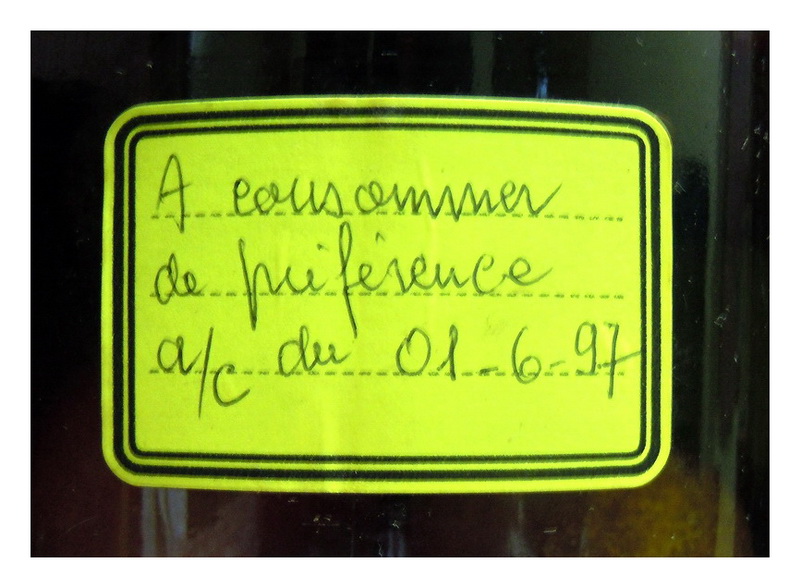 A consommer
de préférence
a/c du 01-6-97